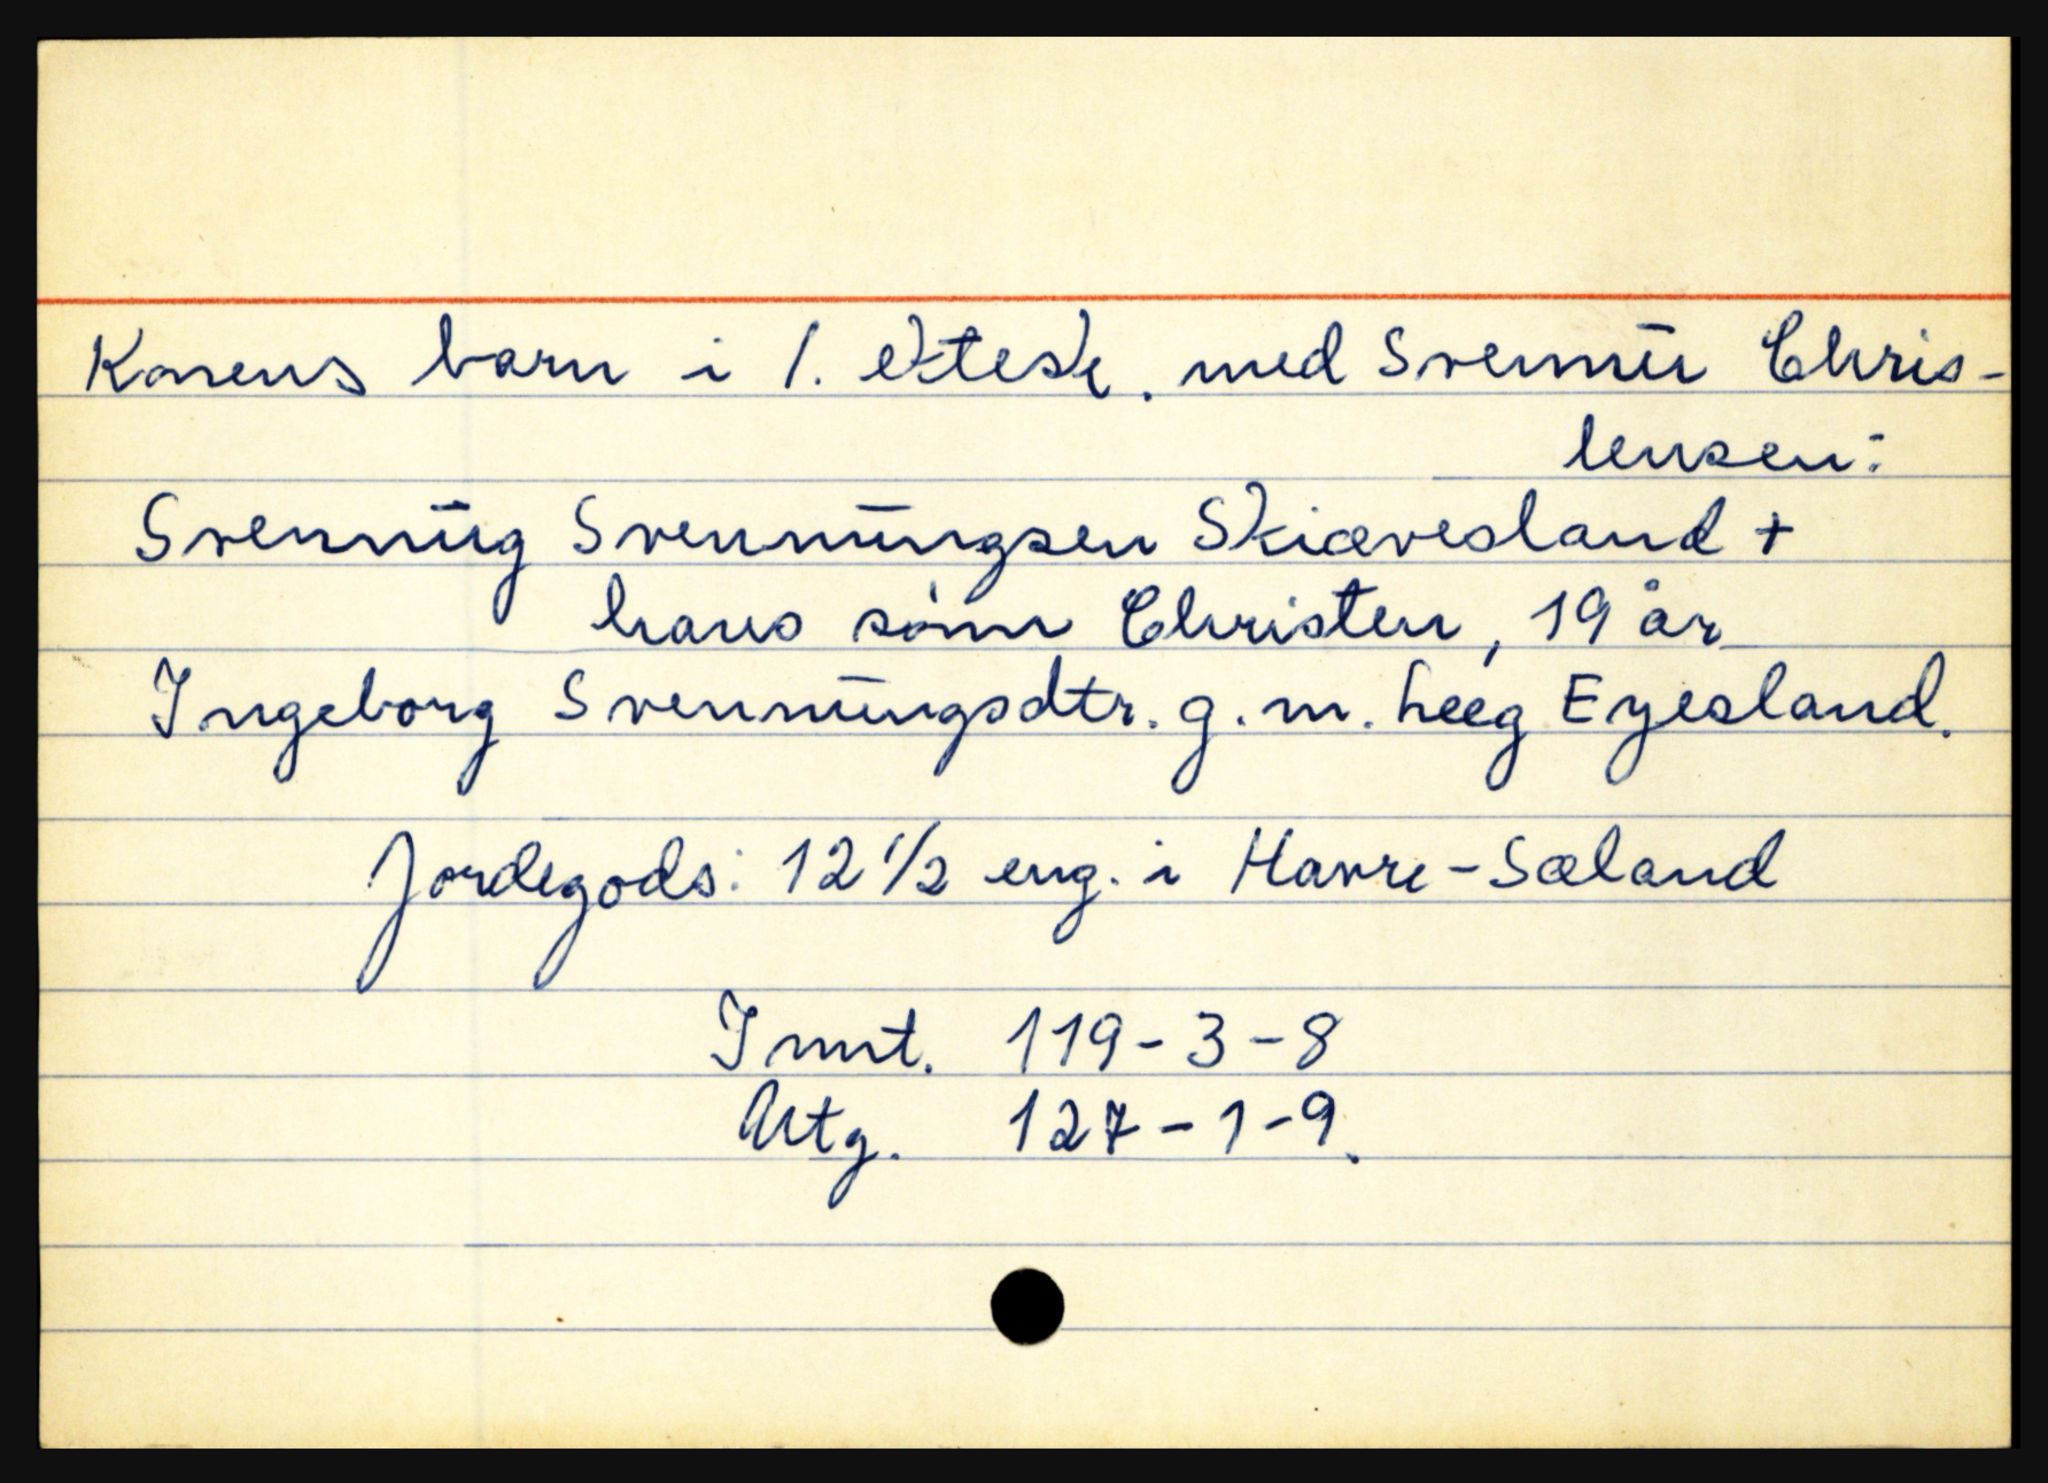 Konens barn i 1. ektesk. med Svennu Chris-
tensen:
Svennug Svennungsen Skiævesland +
hans sønn Christen, 19 år
Ingeborg Svennungsdtr. g. m. Leeg Eyesland.
Jordegods: 12 1/2 eng. i Havre-Sæland
Innt. 119-3-8
Utg. 127-1-9.